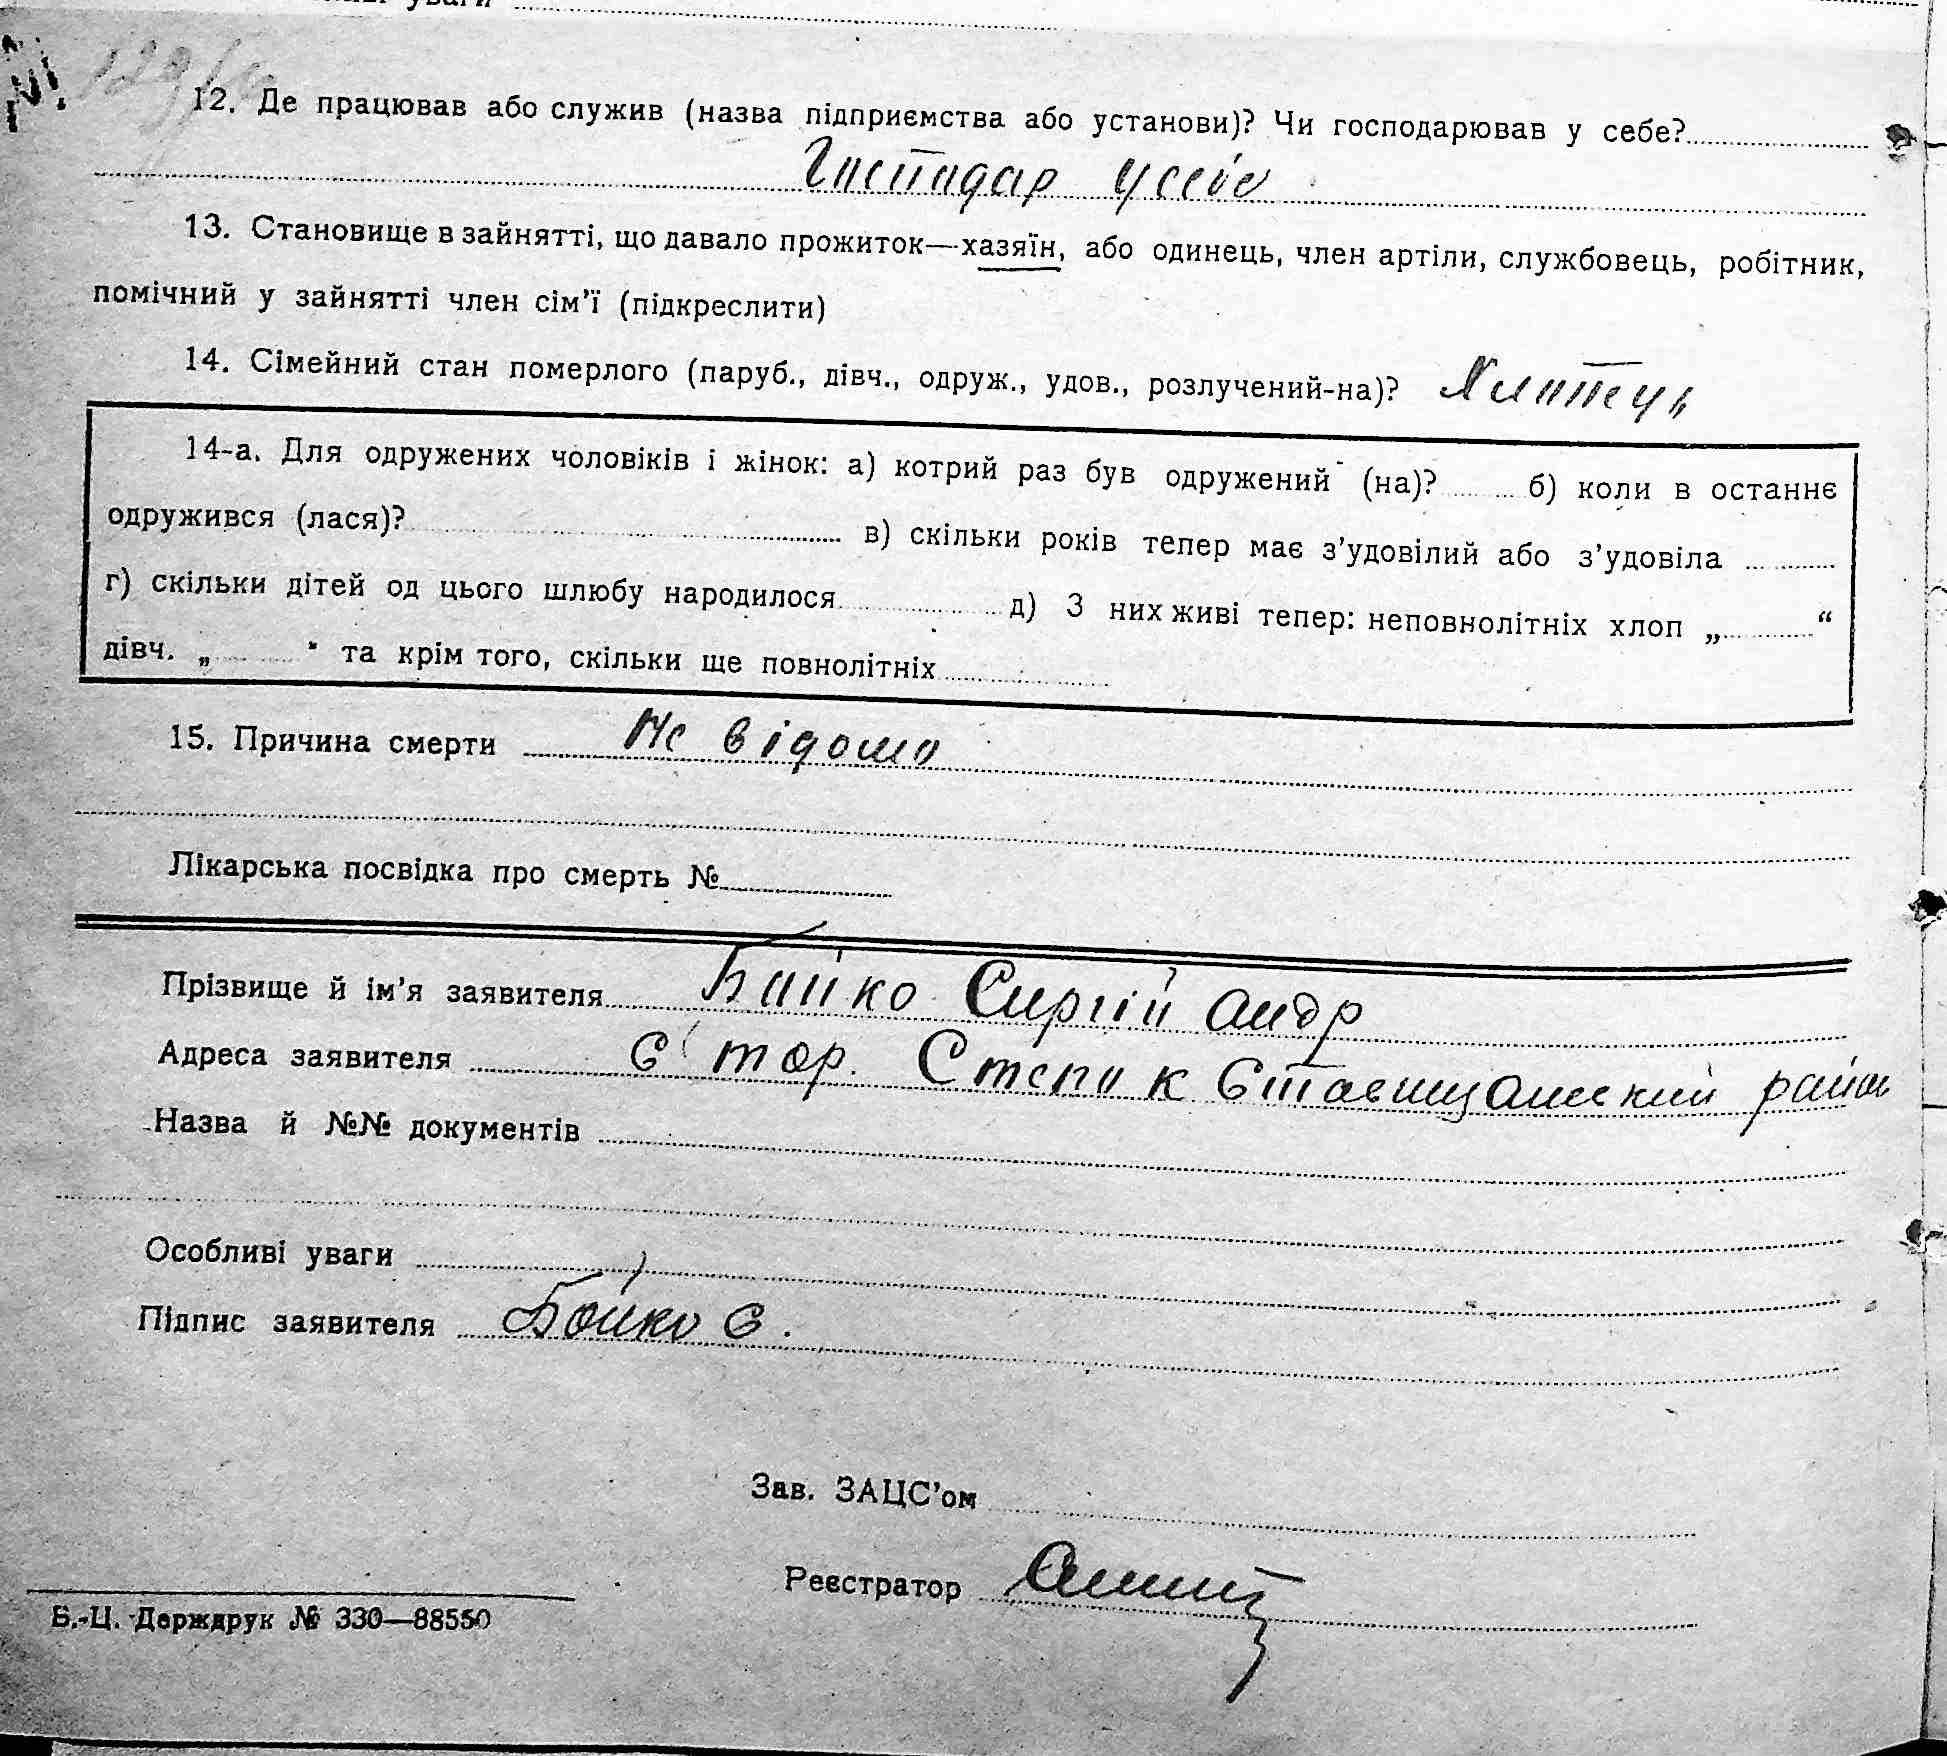 уваги
12. Де працював або служив (назва підприємства або установи)? Чи господарював у себе?
Господар у себе
13. Становище в зайнятті, що давало прожиток—хазяїн, або одинець, член артіли, службовець, робітник,
помічний у зайнятті член сім'ї (підкреслити)
14. Сімейний стан померлого (паруб., дівч., одруж., удов., розлучений-на)? Хлопець
14-а. Для одружених чоловіків і жінок: а) котрий раз був одружений (на)? б) коли в останнє
одружився (лася)? в) скільки років тепер має з'удовілий або з'удовіла
г) скільки дітей од цього шлюбу народилося д) З них живі тепер: неповнолітніх хлоп „ “
дівч. „ “ та крім того, скільки ще повнолітніх
15. Причина смерти Не відомо
Лікарська посвідка про смерть №
Прізвище й ім'я заявителя Бойко Сергій Андр
Адреса заявителя хутор. Степок Ставищанський район
Назва й №№ документів
Особливі уваги
Підпис заявителя Бойко С.
Зав. ЗАЦС'ом
Реєстратор
Б.-Ц. Держдрук № 330—88550